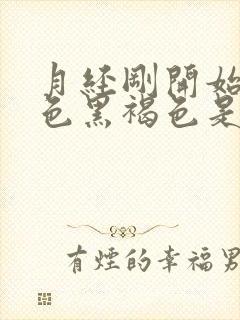 月經剛開始
色黑褐色是
有煙的幸福男